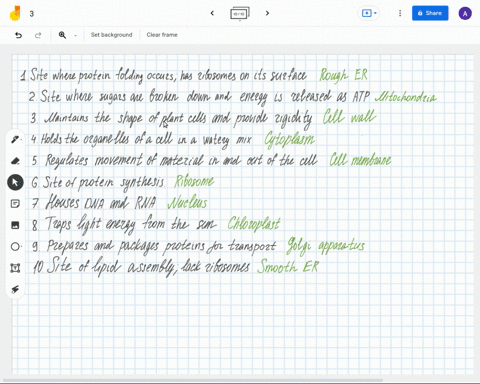 3
10 / 10
Share
A
Set background
Clear frame
1 Site where protein folding occurs, has ribosomes on its surface Rough ER
2 Site where sugars are broken down and energy is released as ATP Mitochondria
3 Maintains the shape of plant cells and provide rigidity Cell wall
4 Holds the organelles of a cell in a watery mix Cytoplasm
5 Regulates movement of material in and out of the cell Cell membrane
6. Site of protein synthesis Ribosome
7 Houses DNA and RNA Nucleus
8 Traps light energy from the sun Chloroplast
9. Prepares and packages proteins for transport Golgi apparatus
10 Site of lipid assembly, lack ribosomes Smooth ER